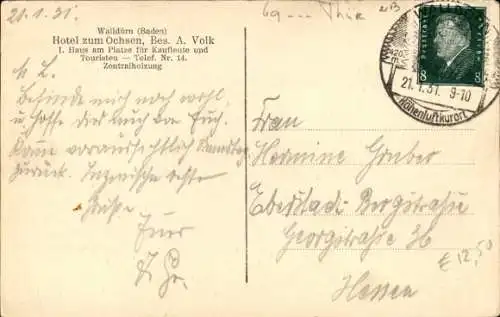 21.1.31.
Walldürn (Baden)
Hotel zum Ochsen, Bes. A. Volk
I. Haus am Platze für Kaufleute und
Touristen — Telef. Nr. 14.
Zentralheizung
M. L.
Befinde mich noch wohl
u. hoffe dies auch von Euch.
Komme voraussichtlich Samstag
zurück. Inzwischen echte
Grüße
Euer
21.1.31. 9-10
Höhenluftkurort
8 8
Frau
Hermine Gruber
Eberstadt-Bergstraße
Georgstraße 36
Hessen
€ 12,50